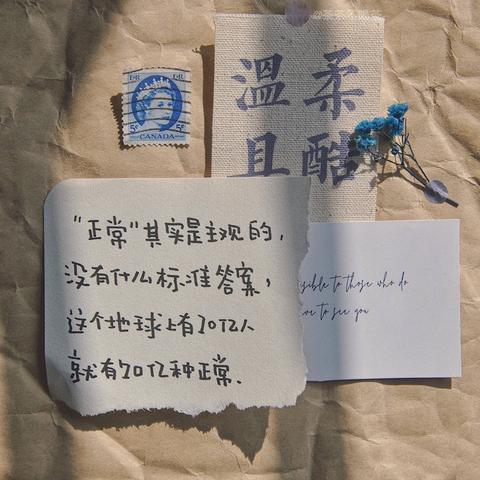 溫柔
且酷
E R E R
5¢ 5¢
CANADA
"正常"其实是主观的,
没有什么标准答案,
这个地球上有70亿人
就有70亿种正常.
sible to those who do
to see you